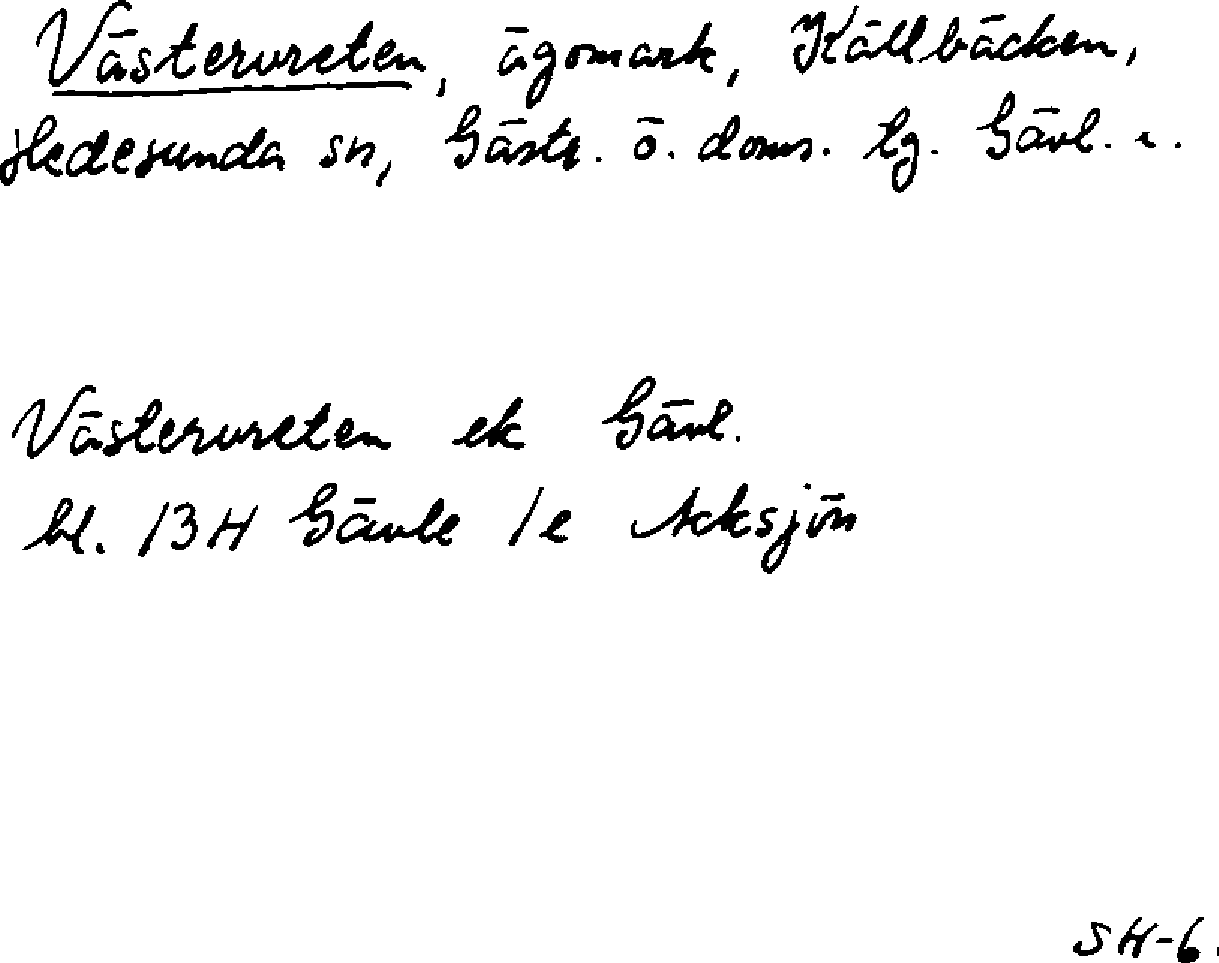 Västervreten, ägomark, Källbäcken,
Hedesunda sn, Gästr. ö. doms. tg. Gävl. l.
Västervreten ek Gävl.
bl. 13H Gävle 1e Acksjön
SH-6.